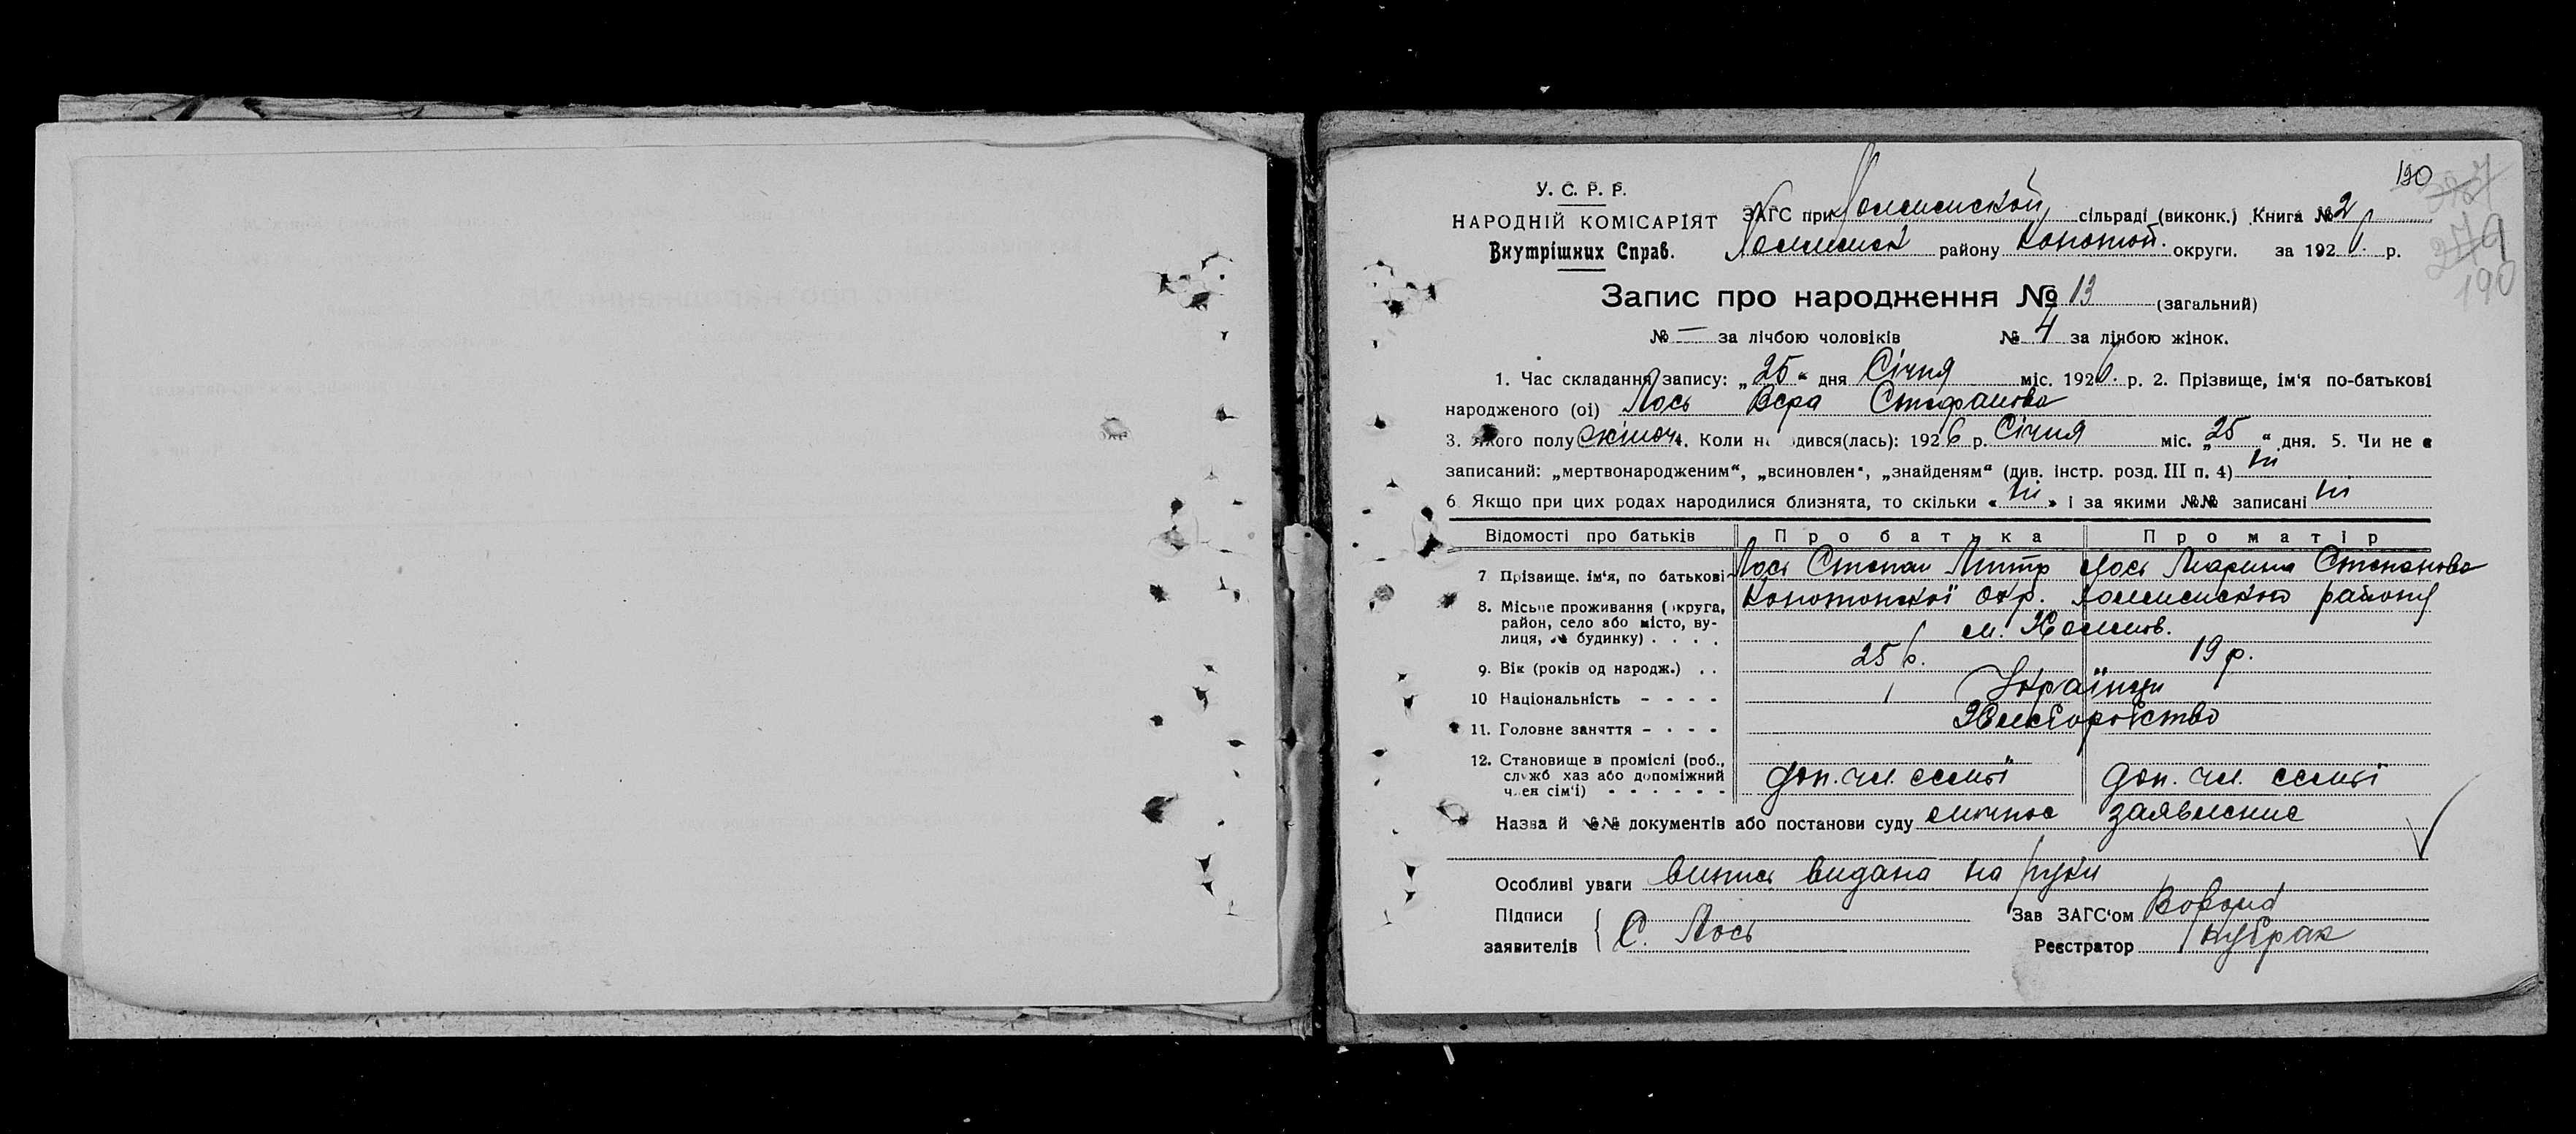 190
У. С. Р. Р.
НАРОДНІЙ КОМІСАРІЯТ
Внутрішних Справ.
ЗАГС при сільраді (виконк.) Книга № 2
району Конотоп. округи. за 1926 р.
279
190
Запис про народження № 13 (загальний)
№ — за лічбою чоловіків № 4 за лічбою жінок.
1. Час складання запису: „25“ дня Січня міс. 1926 р. 2. Прізвище, ім'я по-батькові
народженого (ої) Лось Вера Стефанова
3. якого полу жіноч 4. Коли н дився(лась): 1926 р. Січня міс. „25“ дня. 5. Чи не є
записаний: „мертвонародженим“, „всиновлен“, „знайденям“ (див. інстр. розд. III п. 4) ні
6. Якщо при цих родах народилися близнята, то скільки « ні » і за якими №№ записані ні
Відомості про батьків Про батька Про матір
7 Прізвище, ім'я, по батькові Лось Степан Лось Марина Степанова
8. Місьце проживання (округа, район, село або місто, вулиця, № будинку) . . . . Конотопської Окр. району
9. Вік (років од народж.) . . 25 р. 19 р.
10 Національність - - - - Українци
11. Головне заняття - - - - Хліборобство
12. Становище в промислі (роб., служб хаз або допоміжний член сім'ї) - - - - - - доп. чл. семьї доп. чл. семьї
Назва й №№ документів або постанови суду личное заявление
Особливі уваги випись видана на руки
Підписи
заявителів С. Лось
Зав ЗАГС'ом
Реєстратор Кубрак